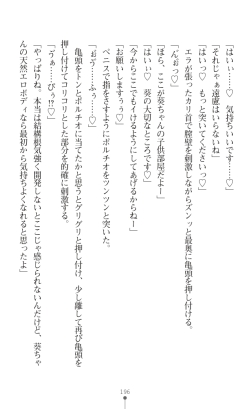 「はいぃ……♡　気持ちいいです……♡」
「それじゃぁ遠慮はいらないね」
「はいっ♡　もっと突いてくださいっ♡」
　エラが張ったカリ首で膣壁を刺激しながらズンっと最奥に亀頭を押し付ける。
「んぉっっ♡」
「ほら、ここが葵ちゃんの子供部屋だよー」
「はいぃ♡　葵の大切なところです♡」
「今からここでもイけるようにしてあげるからねー」
「お願いしますぅぅ♡」
　ペニスで指をさすようにポルチオをツンツンと突いた。
「おっ♡……ふぅ……♡」
　亀頭をトンとポルチオに当てたかと思うとグリグリと押し付け、少し離して再び亀頭を
押し付けてコリコリとした部分を的確に刺激する。
「うぁ……ぴぅ!?♡」
「やっぱりね。本当は結構根気強く開発しないとここじゃ感じられないんだけど、葵ちゃ
んの天然エロボディなら最初から気持ちよくなれると思ったよ」
196